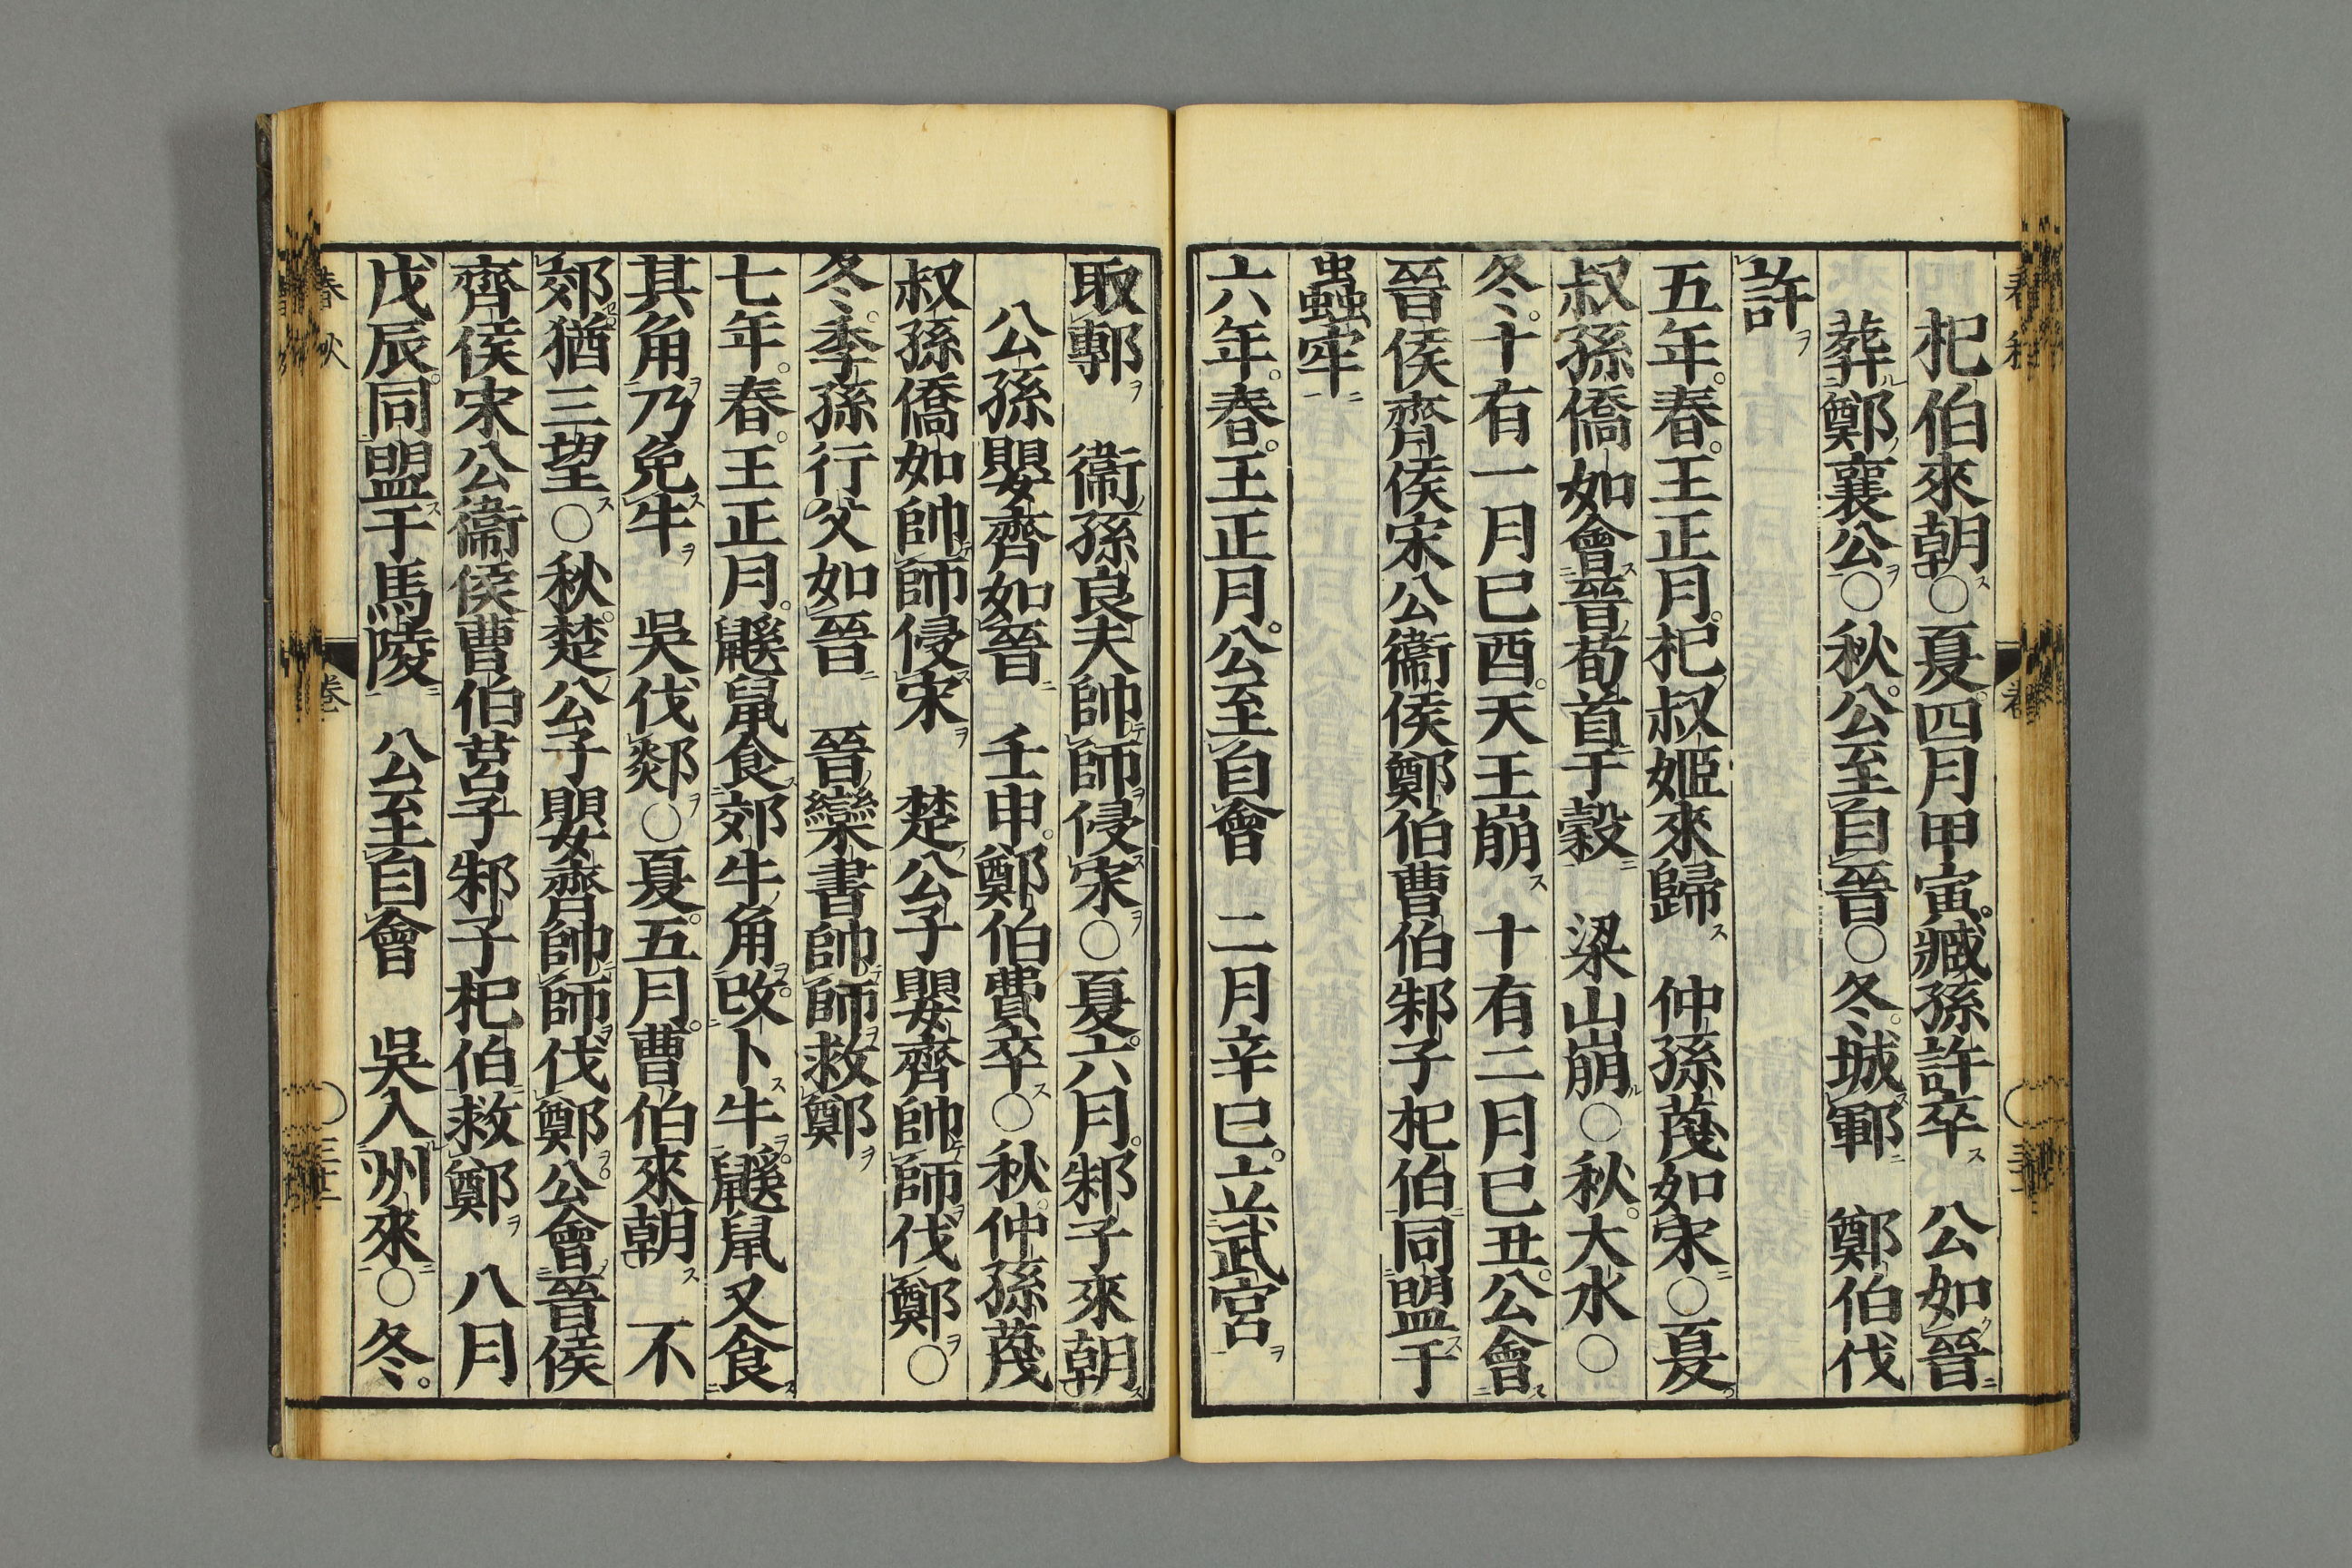 杞伯來朝○夏四月甲寅臧孫許卒　公如晉
葬鄭襄公○秋公至自晉○冬城鄆　鄭伯伐
許
五年春王正月杞叔姬來歸　仲孫蔑如宋○夏
叔孫僑如會晉荀首于穀　梁山崩○秋大水○
冬十有一月已酉天王崩　十有二月已丑公會
晉侯齊侯宋公衞侯鄭伯曹伯邾子杞伯同盟于
蟲牢
六年春王正月公至自會　二月辛巳立武宮
取鄟　衞孫良夫帥師侵宋○夏六月邾子來朝
公孫嬰齊如晉　壬申鄭伯費卒○秋仲孫蔑
叔孫僑如帥師侵宋　楚公子嬰齊帥師伐鄭○
冬季孫行父如晉　晉欒書帥師救鄭
七年春王正月鼷鼠食郊牛角改卜牛鼷鼠又食
其角乃免牛　吳伐郯○夏五月曹伯來朝　不
郊猶三望○秋楚公子嬰齊帥師伐鄭公會晉侯
齊侯宋公衞侯曹伯莒子邾子杞伯救鄭　八月
戊辰同盟于馬陵　公至自會　吳入州來○冬
春秋
卷